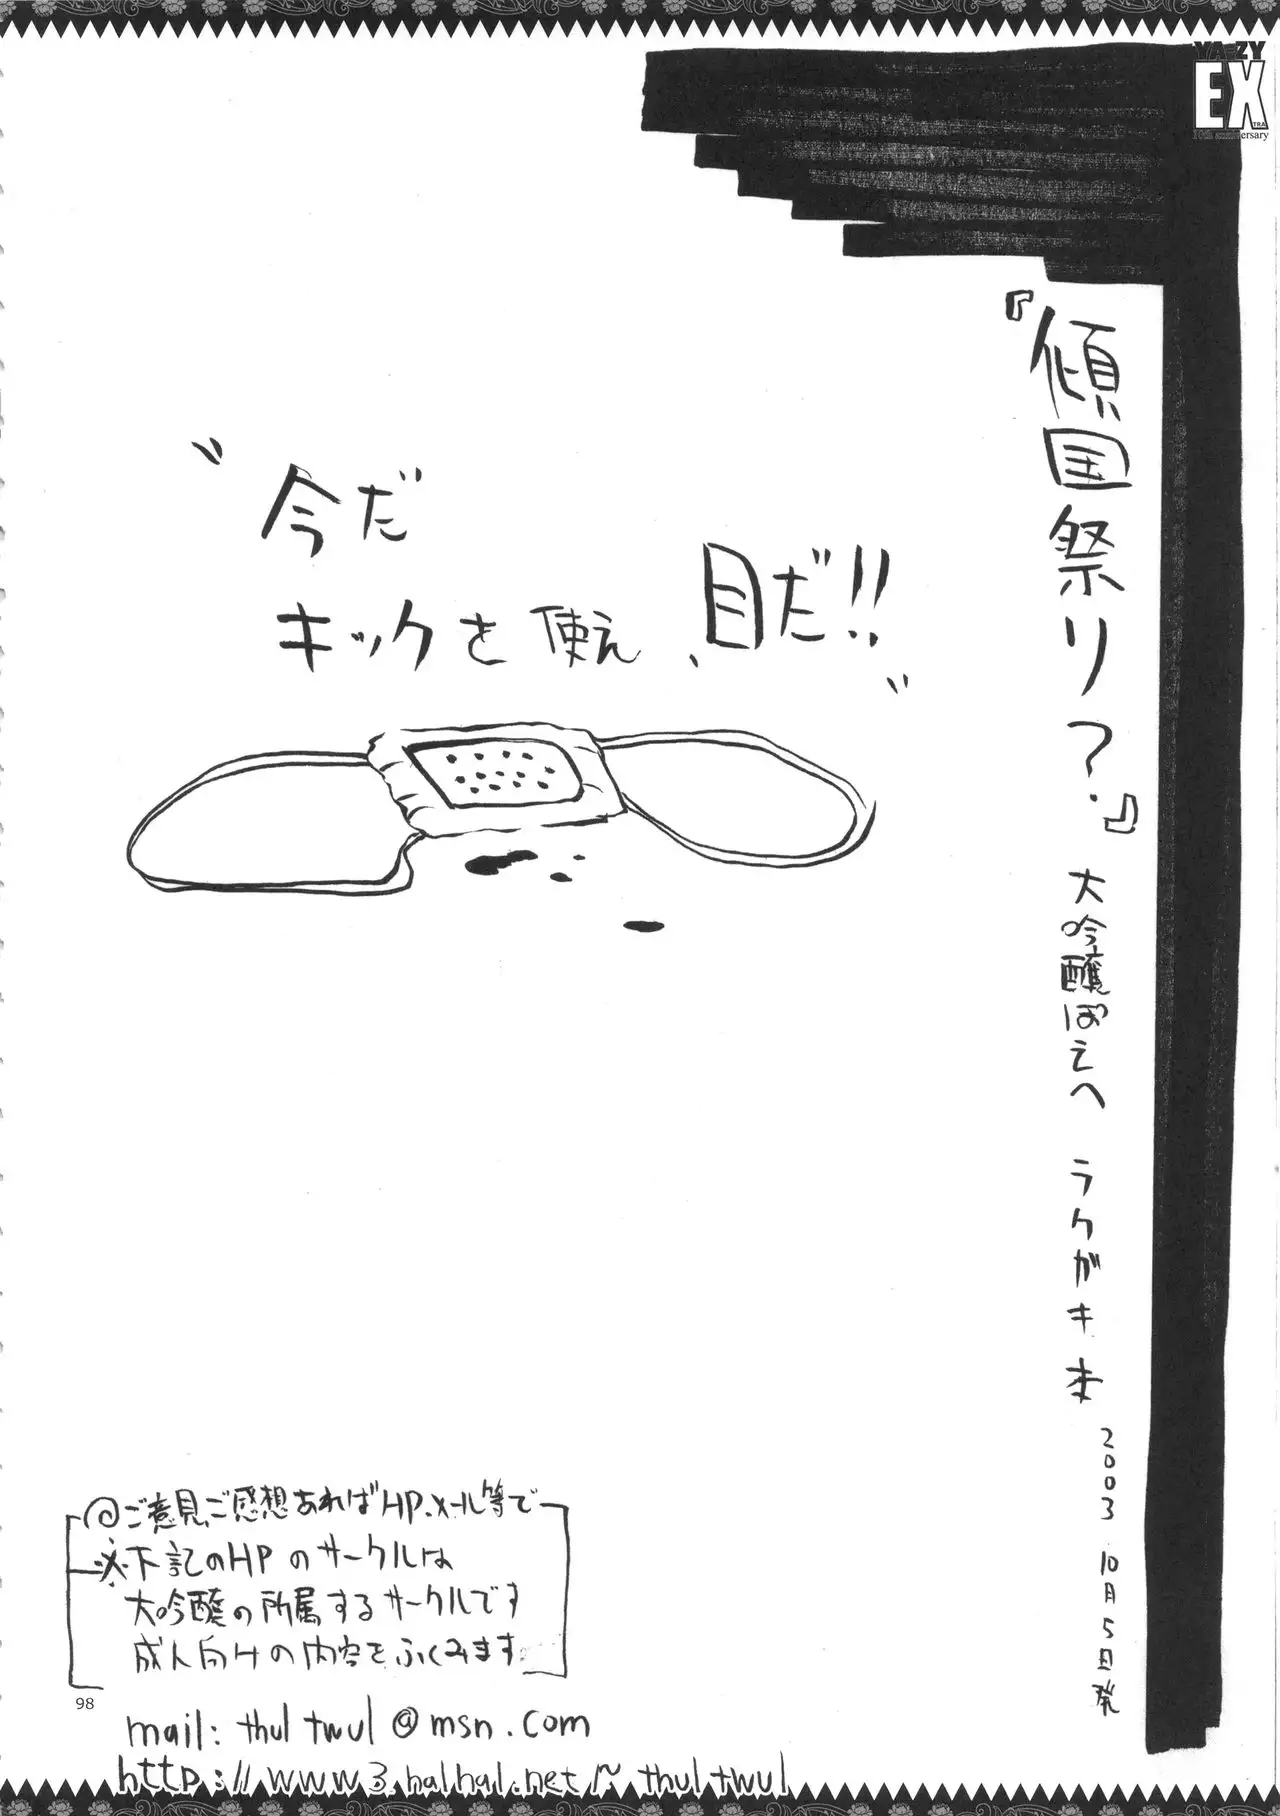 YA-ZY
EX
TRA
10th anniversary
『傾国祭り?』 大吟醸ぽえへ ラクガキ本
2003 10月5日発
"今だ
キックを使え、目だ!!"
@ご意見、ご感想あればHP、メール等で
※下記のHPのサークルは
大吟醸の所属するサークルです
成人向けの内容をふくみます
98
mail: thultwul@msn.com
http://www3.halhal.net/~thultwul